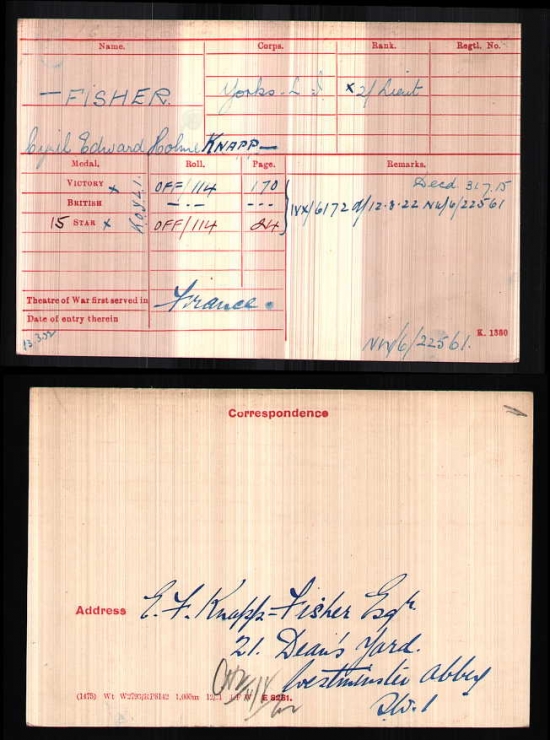 Name. Corps. Rank. Regtl. No.
— FISHER. Yorks. L.I. x 2/Lieut
Cyril Edward Holme KNAPP—
Medal. Roll. Page. Remarks.
VICTORY x K.O.Y.L.I. OFF/114 170 Decd 31.7.15
BRITISH —·— --- IVX/6172 d/12-8-22 NW/6/22561
15 STAR x OFF/114 24
Theatre of War first served in France.
Date of entry therein
NW/6/22561. K. 1380
Correspondence
Address E. F. Knapp-Fisher Esqr.
21. Dean's Yard.
Westminster Abbey
S.W.1
(1473) Wt W2793/RP8142 E 8261.